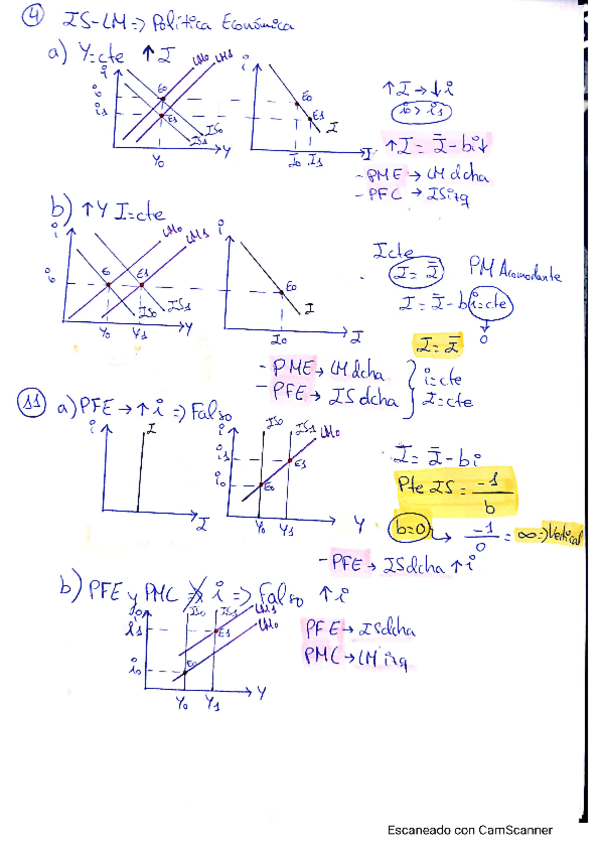 4 IS-LM => Política Económica
a) Y=cte ↑I
i LM0 LM1 i
i0 E0 E0
i1 E1 E1
IS0 IS1 I
Y0 Y I0 I1 I
↑I → ↓i
i0 > i1
↑I = Ī - bi↓
- PME → LM dcha
- PFC → IS izq
b) ↑Y I=cte
i LM0 LM1 i
i0 E E1 E0
IS0 IS1 I
Y0 Y1 Y I0 I
I cte
I = Ī PM Acomodante
I = Ī - b i=cte
0
I = Ī
- PME → LM dcha
- PFE → IS dcha
i=cte
I=cte
11 a) PFE → ↑i => Falso
i I i IS0 IS1 LM0
i1 E1
i0 E0
I Y0 Y1 Y
I = Ī - bi
Pte IS = -1/b
b=0 → -1/0 = ∞ => Vertical
- PFE → IS dcha ↑i
b) PFE y PMC => i => Falso ↑i
IS0 IS1 LM1
LM0
i1 E1
i0 E0
Y0 Y1 Y
PFE → IS dcha
PMC → LM izq
Escaneado con CamScanner